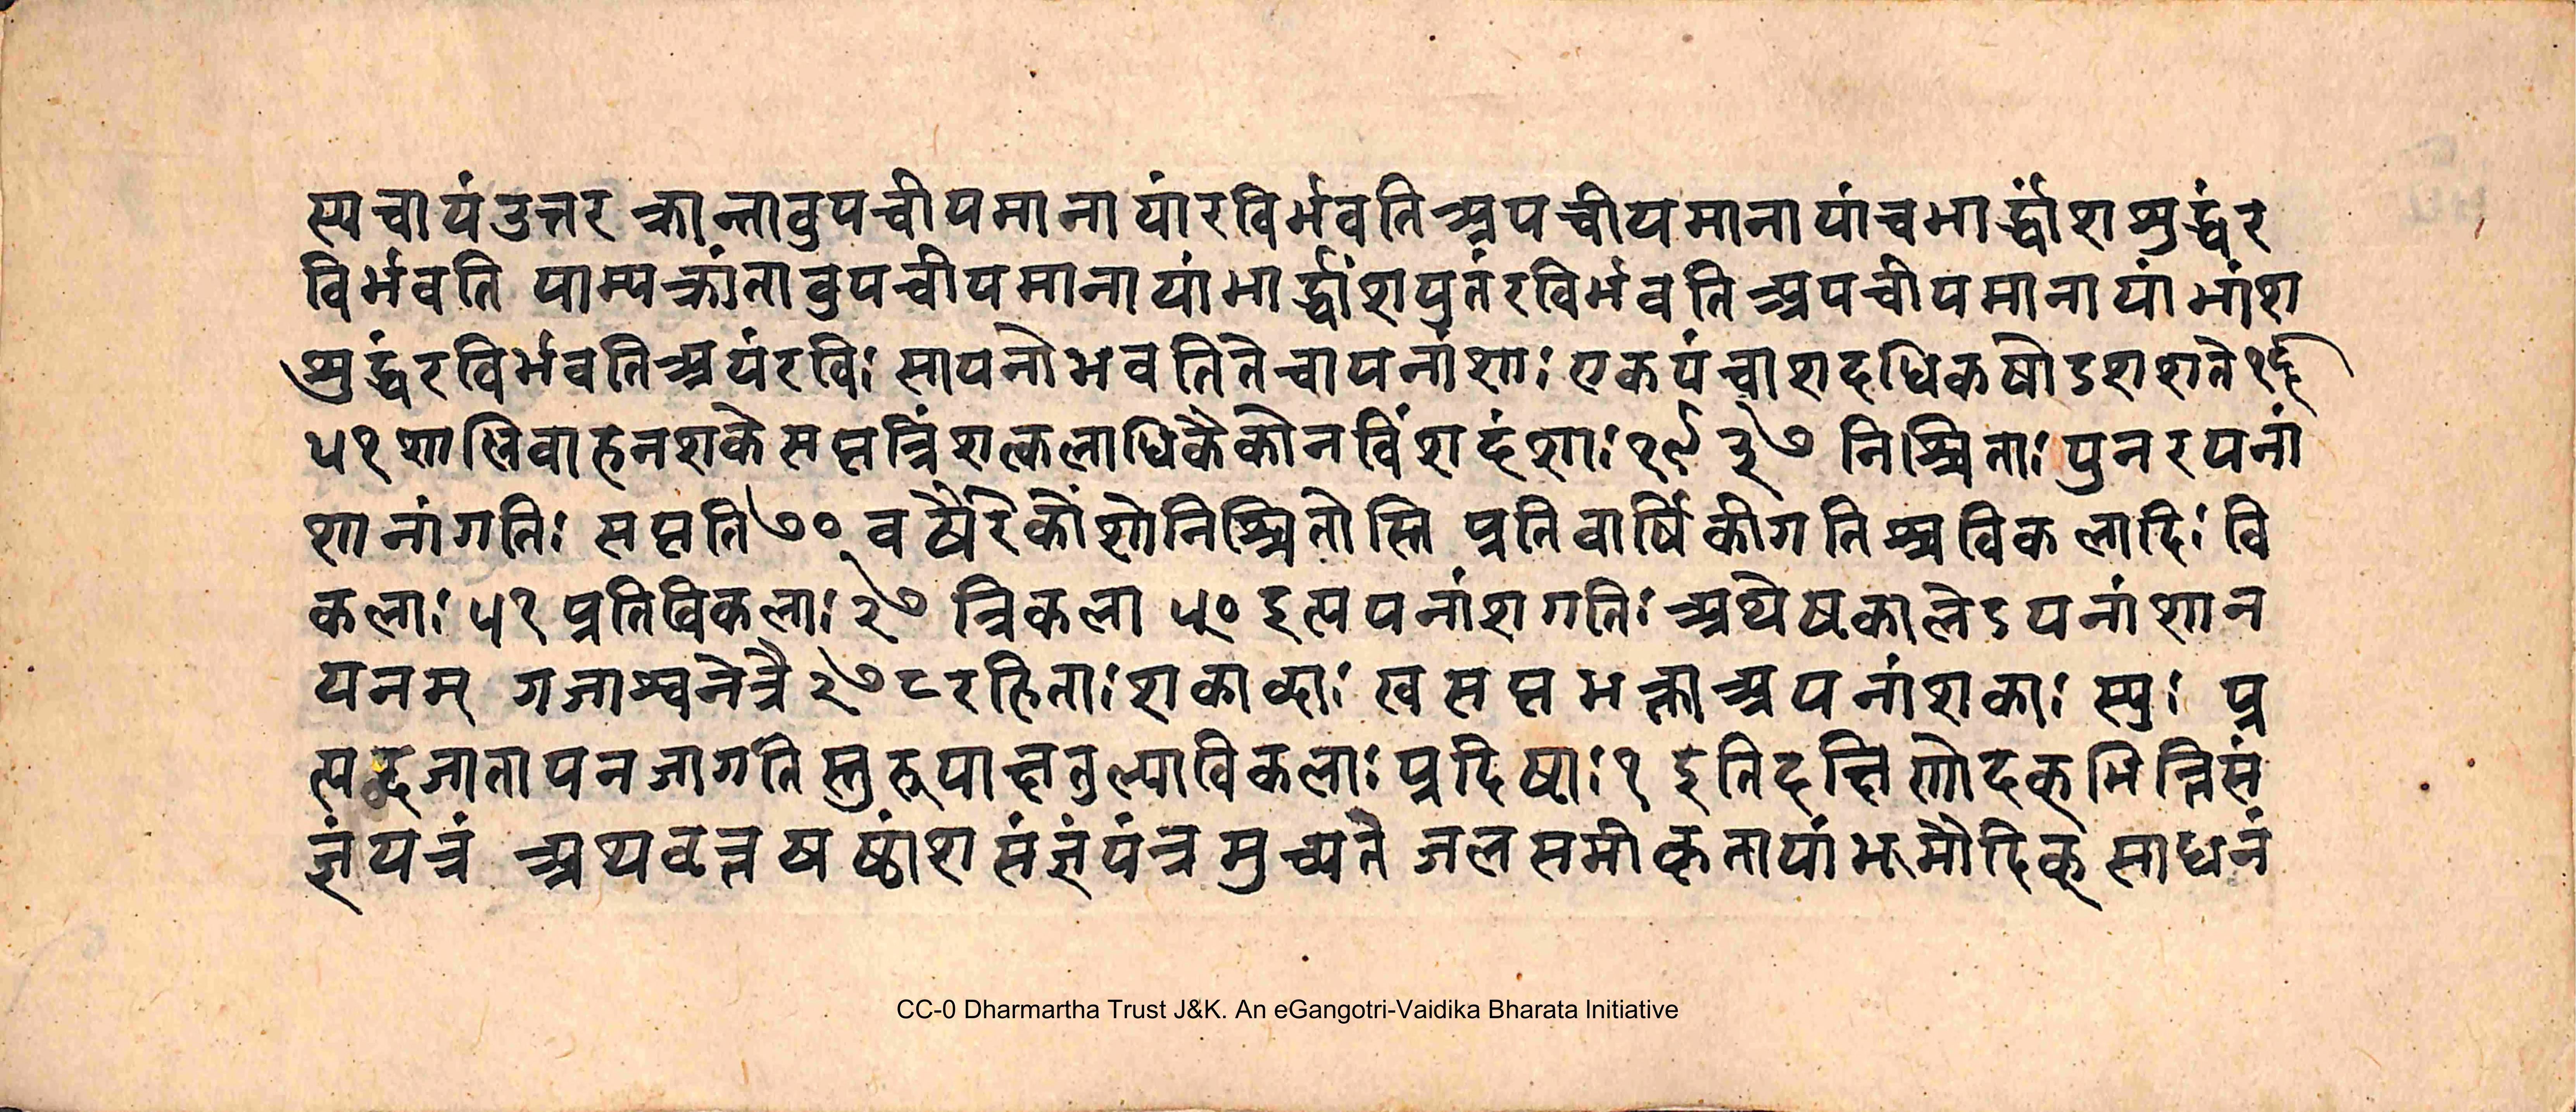 स्य चायं उत्तर क्रान्तावुपचीयमानायां रविर्भवति अपचीयमानायां च भार्द्धांशशुद्धं र
विर्भवति याम्यक्रांतावुपचीयमानायां भार्द्धांशयुतं रविर्भवति अपचीयमानायां भांश
शुद्धं रविर्भवति अयं रविः सायनो भवति ते चायनांशाः एकपंचाशदधिकषोडशशते १६
५१ शालिवाहनशके सप्तत्रिंशत्कलाधिकैकोनविंशदंशाः १९ ३७ निश्चिताः पुनरयनां
शानां गतिः सप्तति ७० वर्षैरेकोंशो निश्चितोस्ति प्रतिवार्षिकी गतिश्च विकलादिः वि
कलाः ५१ प्रतिविकलाः २७ त्रिकला ५० इत्ययनांशगतिः अथेष्टकालेऽयनांशान
यनम् गजाश्वनेत्रै २७८ रहिताः शकाब्दाः खसप्तभक्ता अयनांशकाः स्युः प्र
त्यब्दजातायनजा गतिस्तु रूपाक्षतुल्या विकलाः प्रदिष्टाः १ इति दक्षिणोदक् भित्तिसं
ज्ञं यंत्रं अथ वृत्तषष्ठांशसंज्ञं यंत्रमुच्यते जलसमीकृतायां भूमौ दिक् साधनं
CC-0 Dharmartha Trust J&K. An eGangotri-Vaidika Bharata Initiative